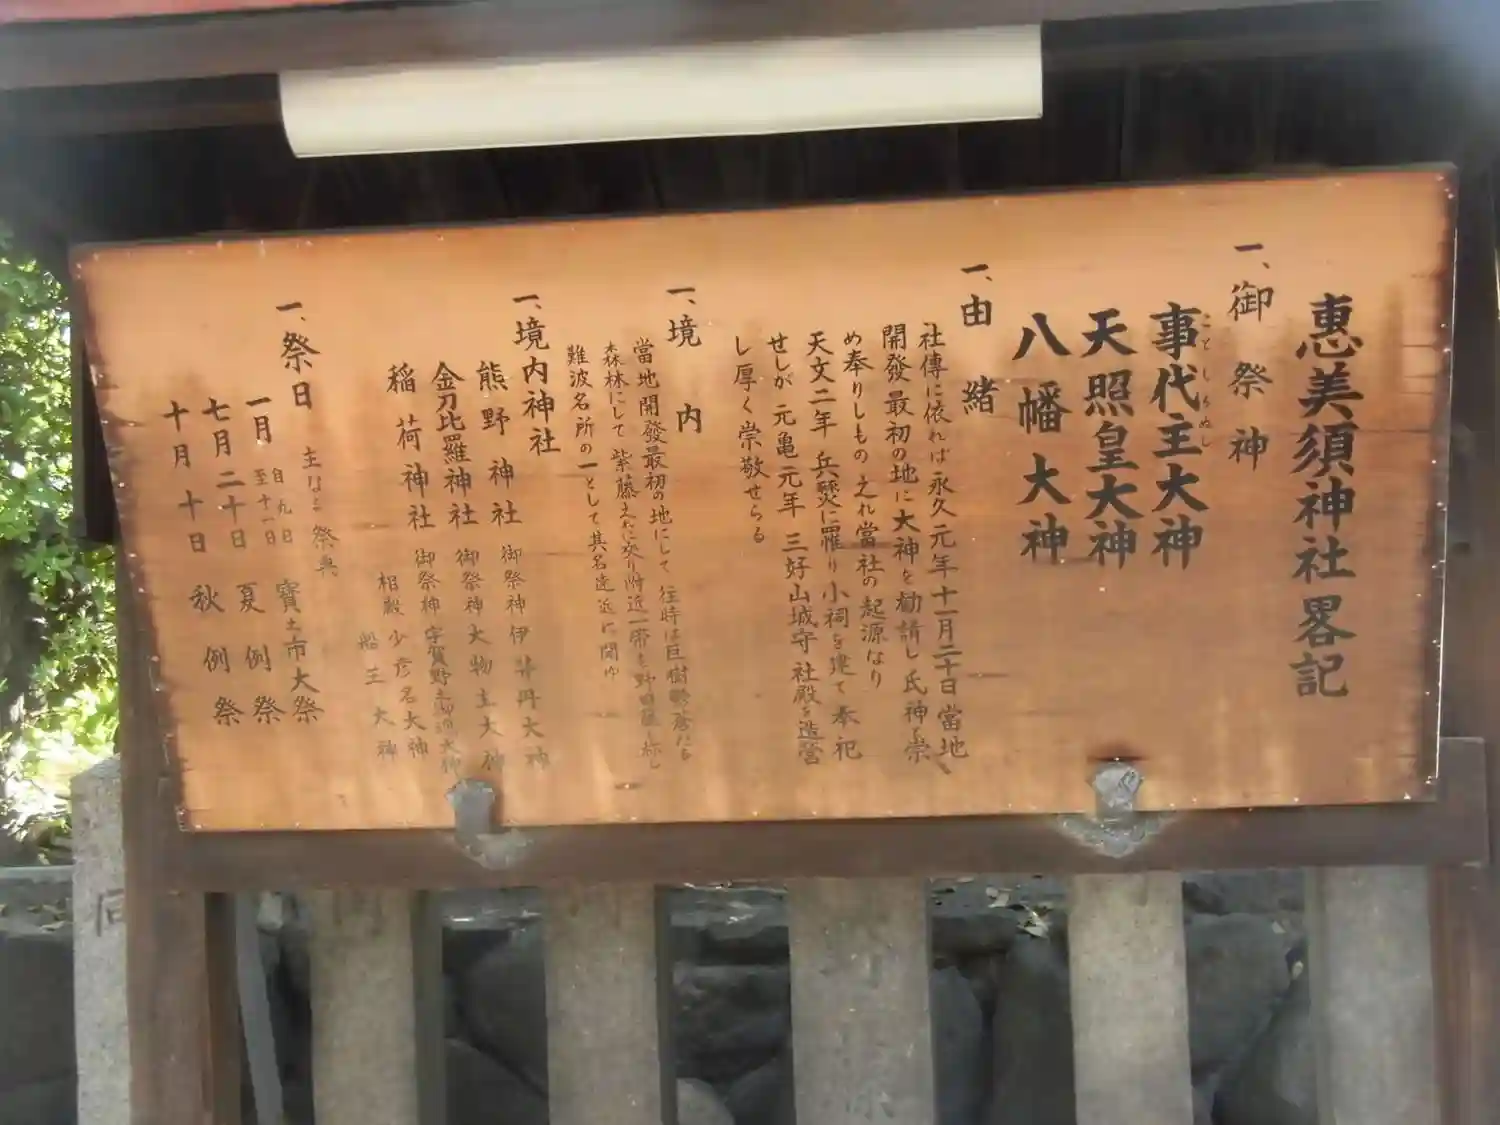 恵美須神社畧記
一、御祭神
事代主大神
ことしろぬし
天照皇大神
八幡大神
一、由緒
社傳に依れば永久元年十一月二十日當地
開發最初の地に大神を勧請し氏神と崇
め奉りしもの之れ當社の起源なり
天文二年 兵燹に罹り小祠を建て奉祀
せしが 元亀元年 三好山城守社殿を造営
し厚く崇敬せらる
一、境内
當地開發最初の地にして 往時は巨樹鬱蒼たる
森林にして 紫藤之れに交り附近一帯を野田藤と称し
難波名所の一として其名遠近に聞ゆ
一、境内神社
熊野神社 御祭神 伊弉冉大神
金刀比羅神社 御祭神 大物主大神
稲荷神社 御祭神 宇賀野志御魂大神
相殿 少彦名大神
船王大神
一、祭日 主なる祭典
一月 自九日 至十一日 寶之市大祭
七月二十日 夏例祭
十月十日 秋例祭